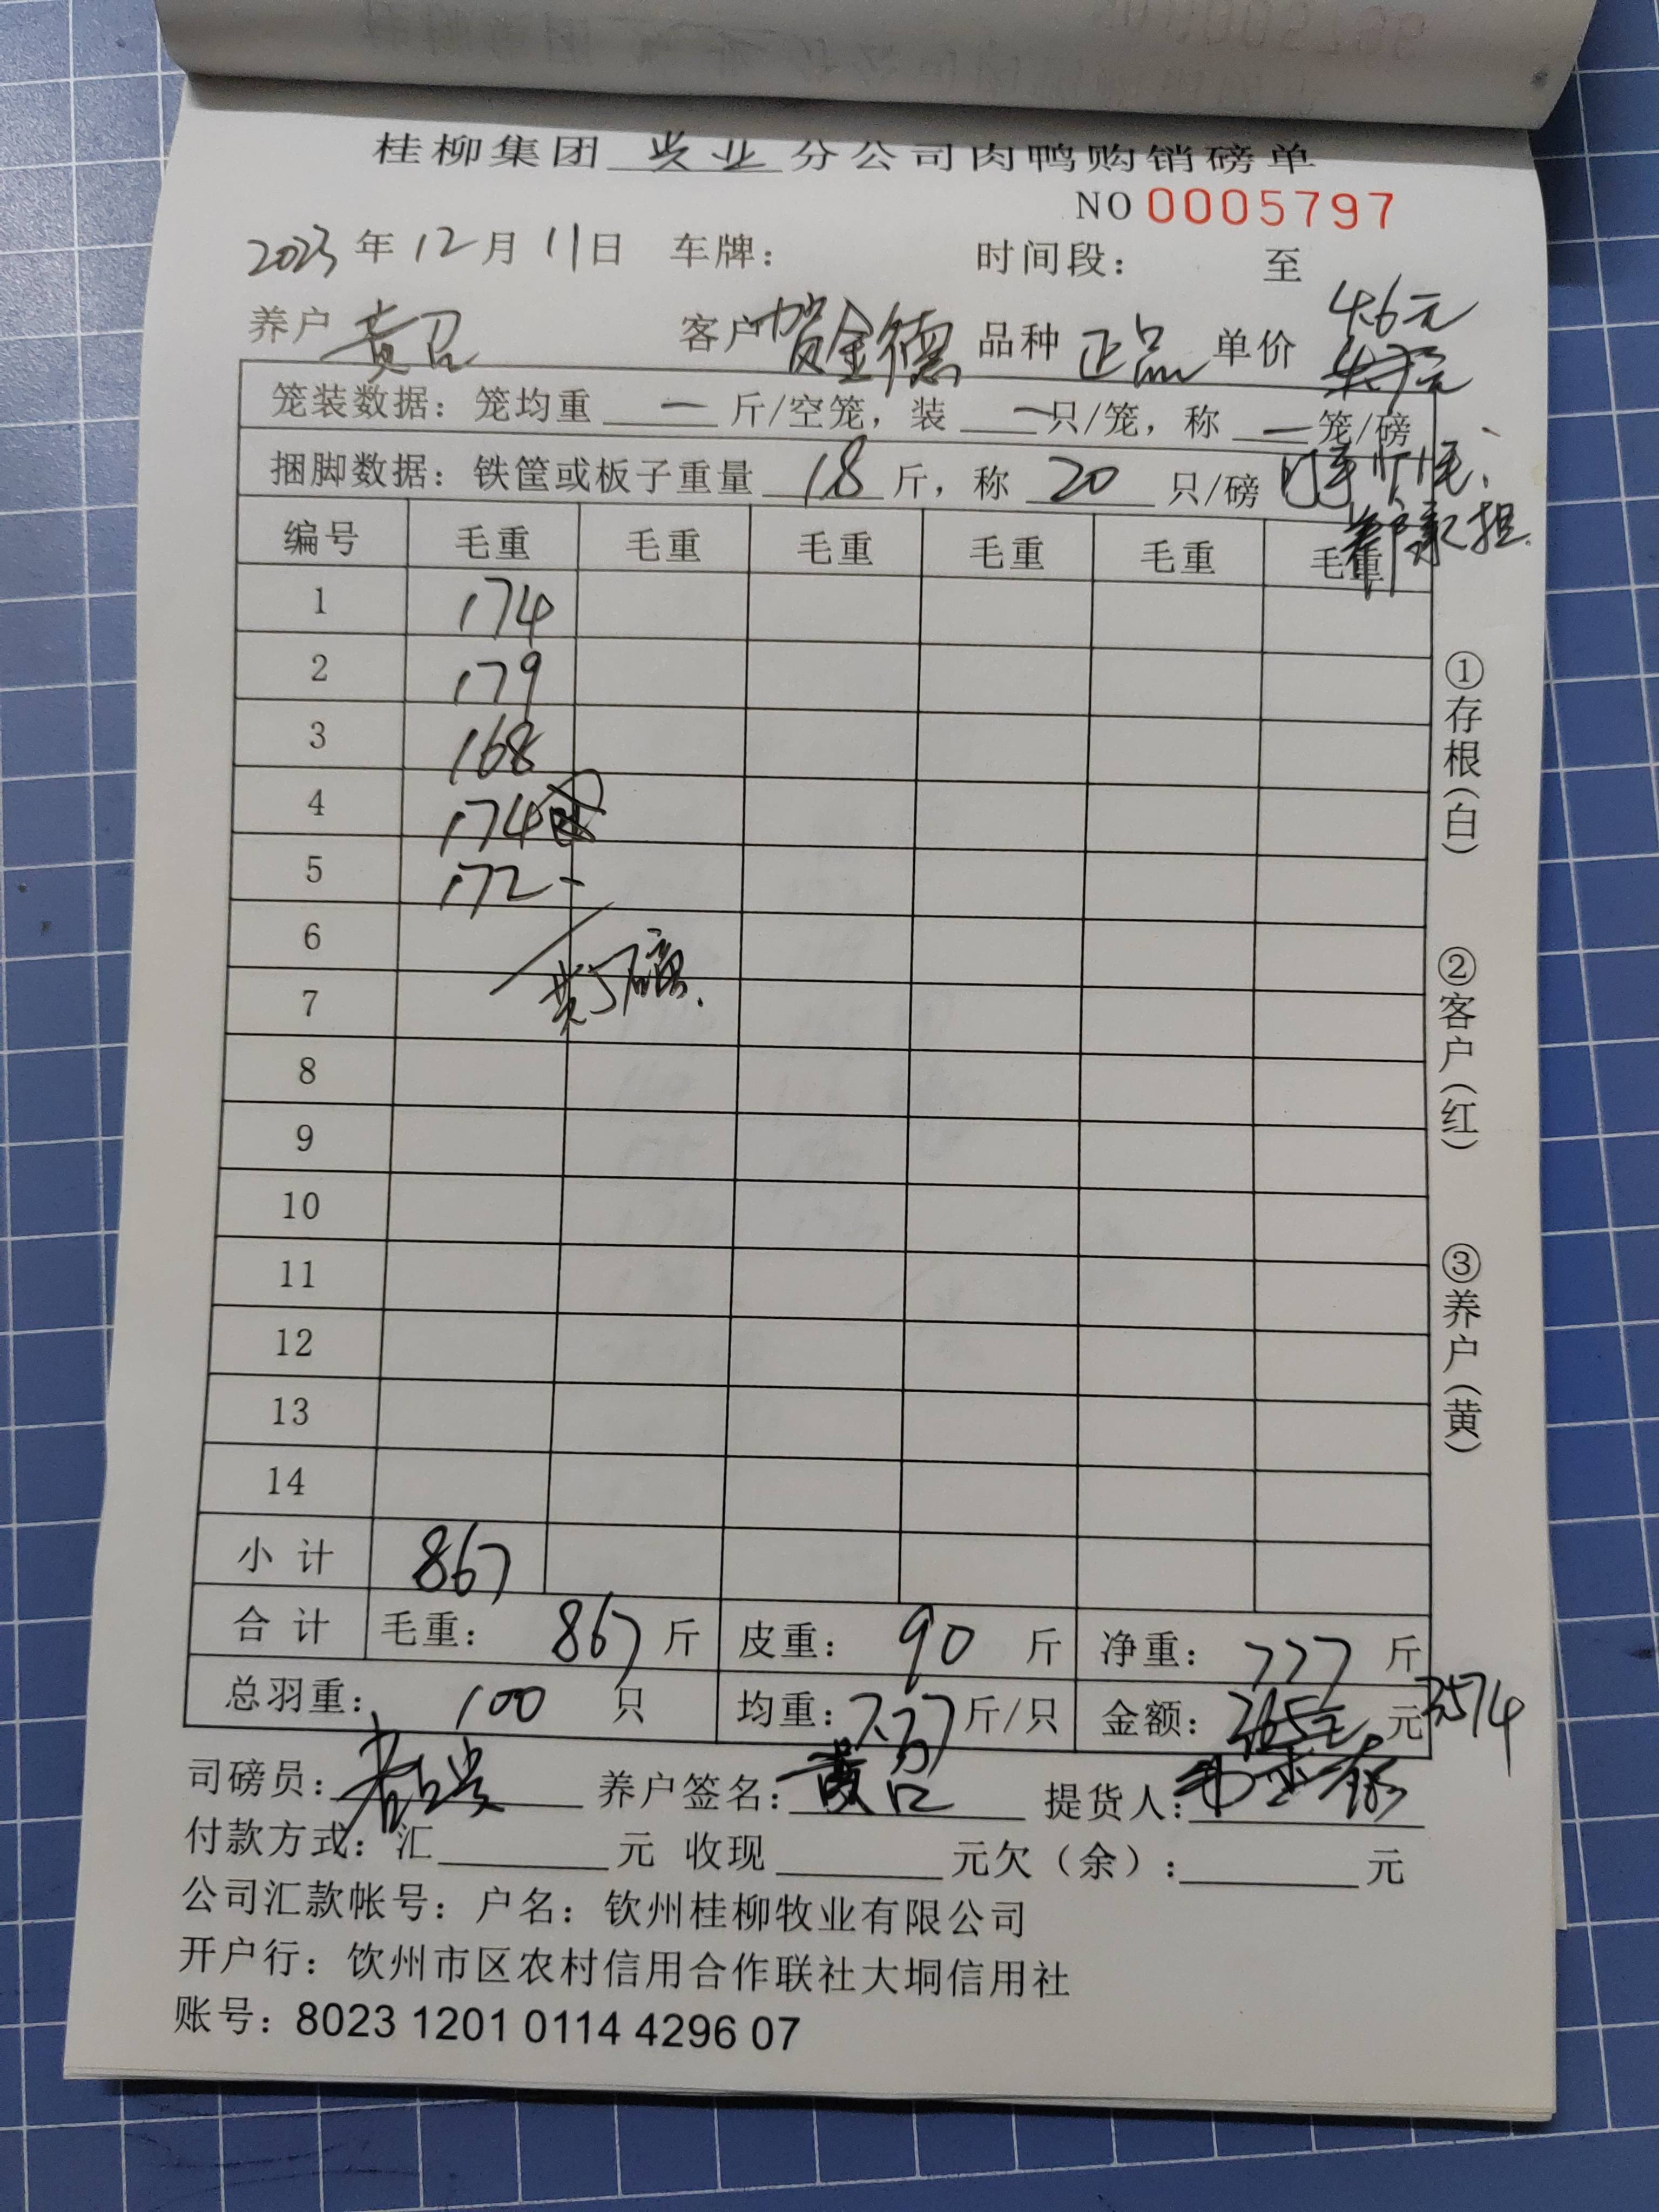 桂柳集团 兴业 分公司肉鸭购销磅单
NO 0005797
2023年12月11日 车牌： 时间段： 至
4.6元
养户 黄召 客户 贺金德 品种 正品 单价 4.7元
笼装数据：笼均重 一 斤/空笼，装 一 只/笼，称 一 笼/磅
捆脚数据：铁筐或板子重量 18 斤，称 20 只/磅
养户承担.
编号 毛重 毛重 毛重 毛重 毛重 毛重
1 174
2 179
3 168
4 174
5 172
6
7
8
9
10
11
12
13
14
小计 867
合计 毛重： 867 斤 皮重： 90 斤 净重： 777 斤
总羽重： 100 只 均重：7.77斤/只 金额： 元 3574
司磅员： 养户签名：黄召 提货人：
付款方式：汇 元 收现 元欠（余）： 元
公司汇款帐号：户名：钦州桂柳牧业有限公司
开户行：钦州市区农村信用合作联社大垌信用社
账号：8023 1201 0114 4296 07
①存根（白）
②客户（红）
③养户（黄）